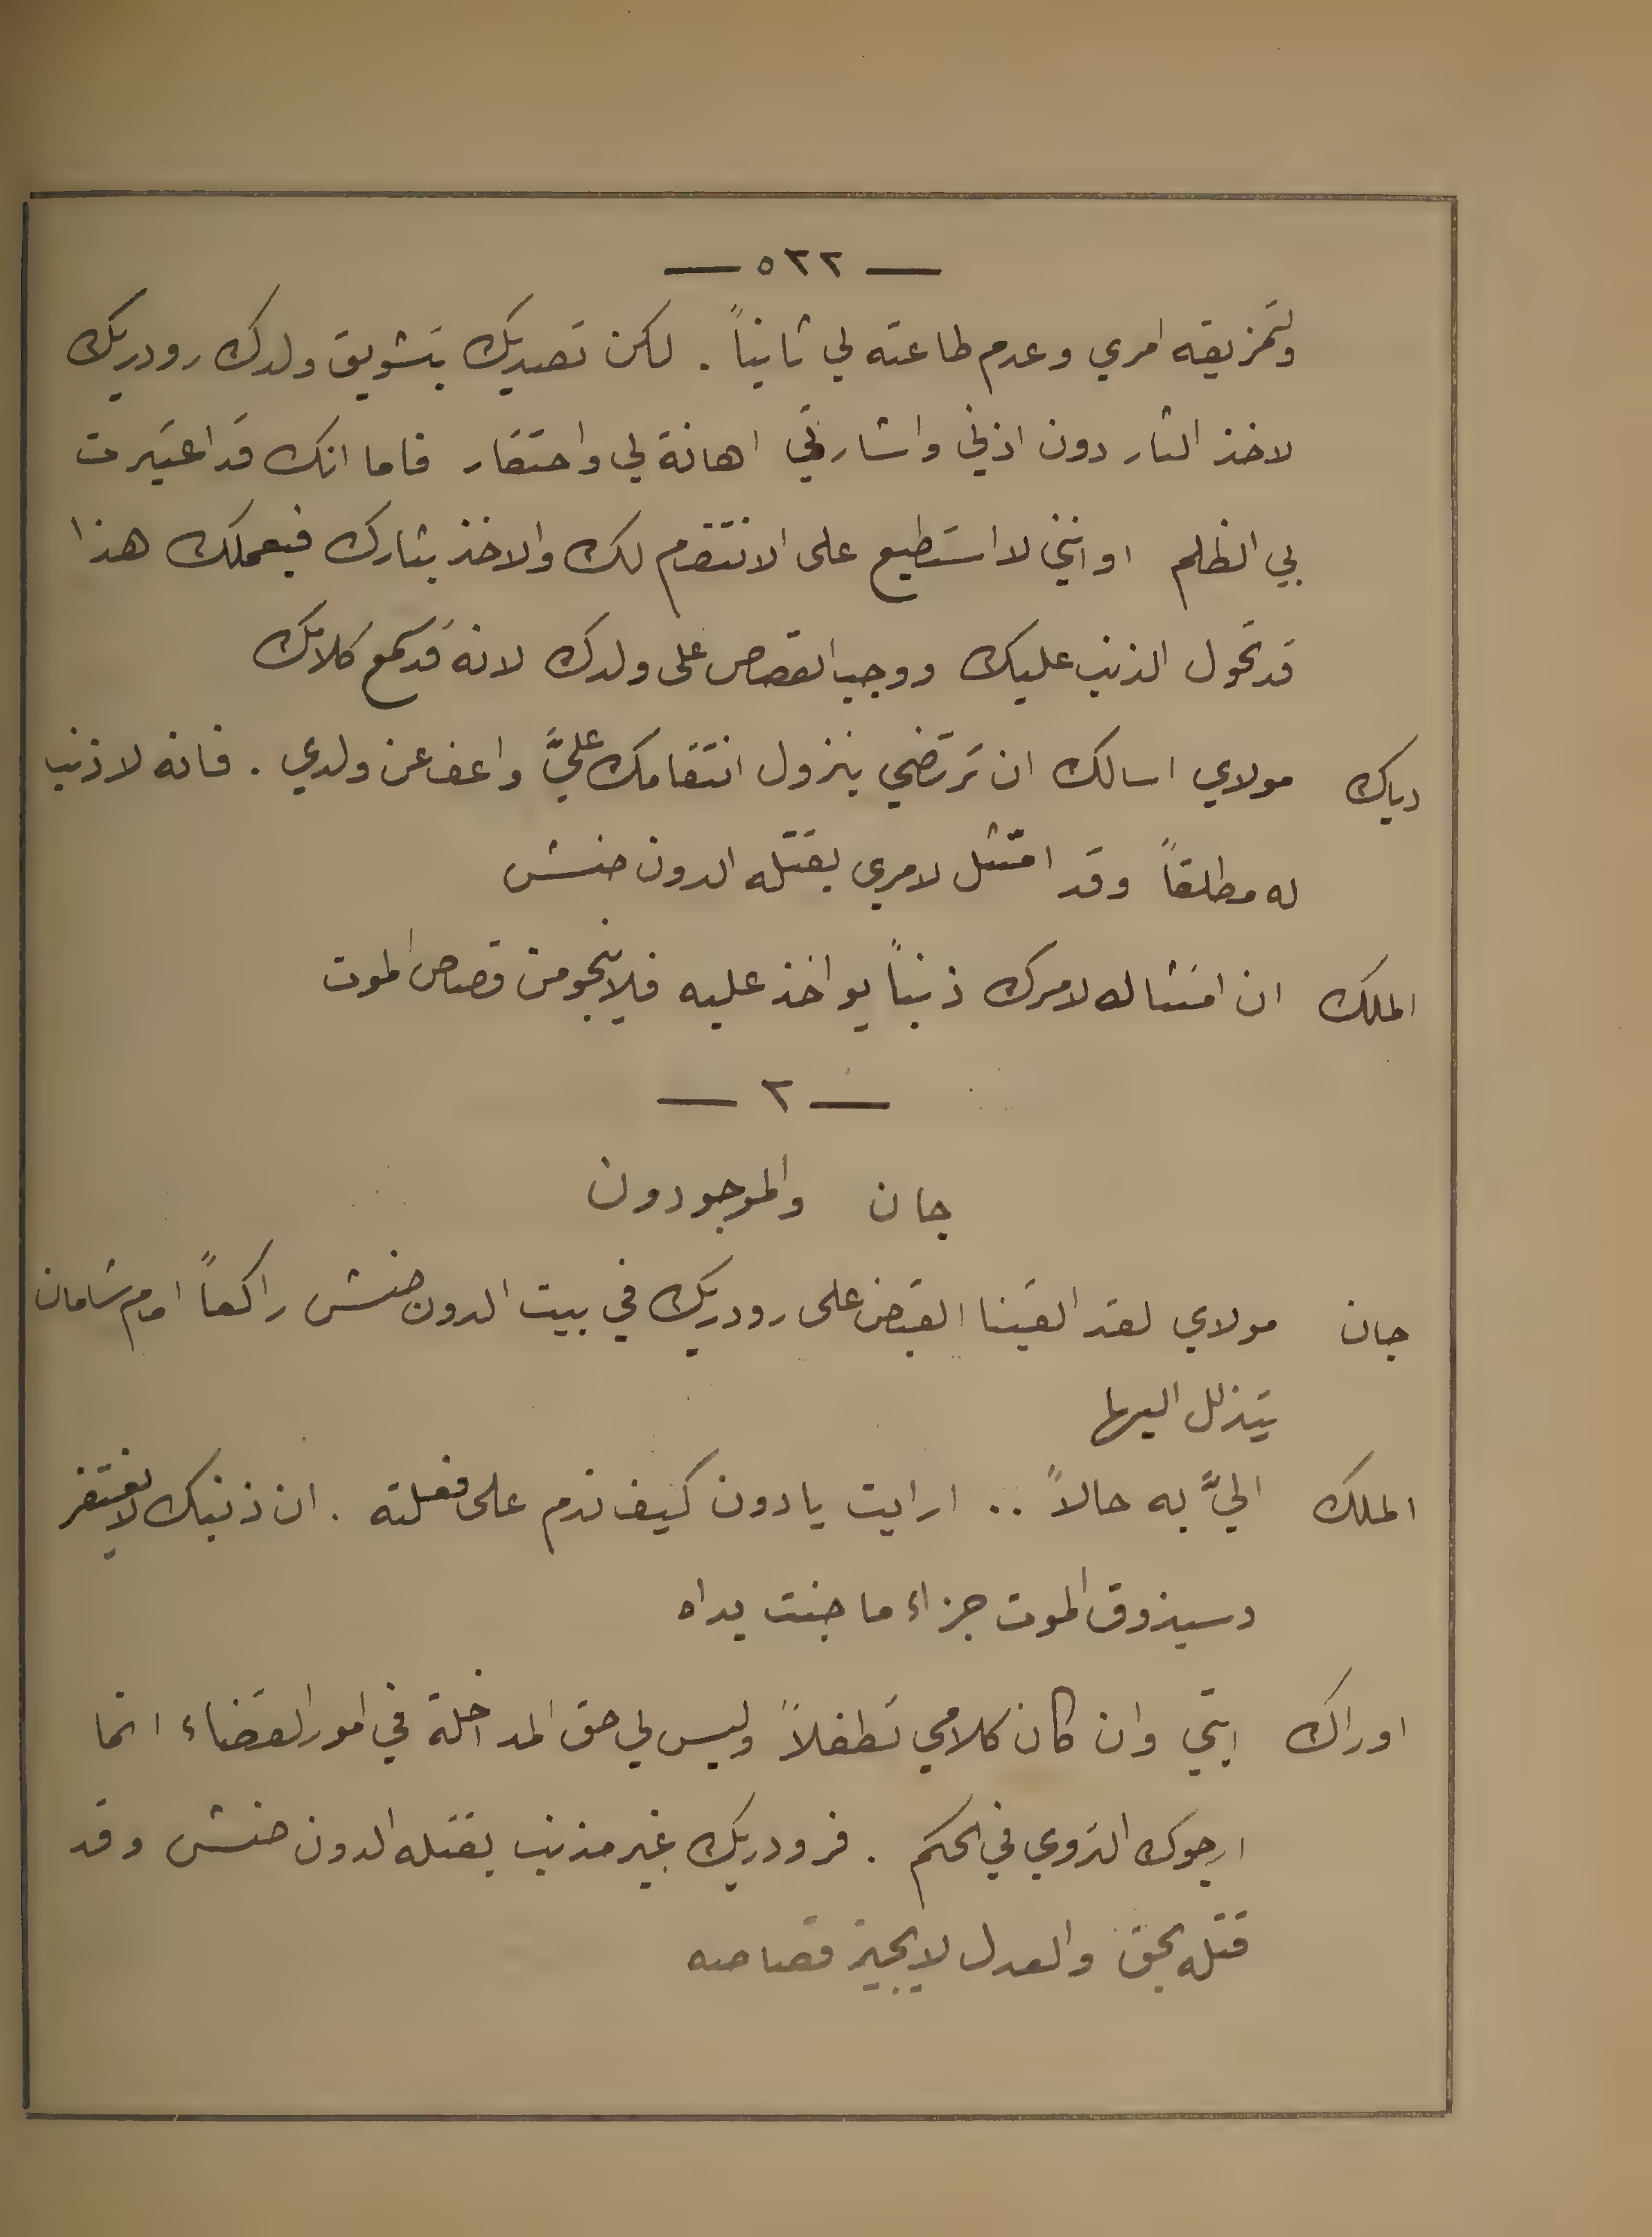 — ٥٢٢ —
ولتمزيقه امري وعدم طاعته لي ثانياً . لكن تصديك بتشويق ولدك رودريك
لاخذ الثار دون اذني واشارتي اهانة لي واحتقار فاما انك قد اعتبرت
بي الظلم او انني لا استطيع على الانتقام لك والاخذ بثارك فبعملك هذا
قد تحول الذنب عليك ووجب القصاص على ولدك لانه قد سمع كلامك
دياك مولاي اسالك ان ترتضي بنزول انتقامك عليَّ واعف عن ولدي . فانه لا ذنب
له مطلقاً وقد امتثل لامري بقتله الدون صنش
الملك ان امتثاله لامرك ذنباً يواخذ عليه فلا ينجو من قصاص الموت
— ٢ —
جان والموجودون
جان مولاي لقد القينا القبض على رودريك في بيت الدون صنش راكعاً امام شامان
يتذلل اليها
الملك اليَّ به حالاً .. ارايت يا دون كيف ندم على فعلته . ان ذنبك لا يغتفر
وسيذوق الموت جزاء ما جنت يداه
اوراك ابتي وان كان كلامي تطفلاً وليس لي حق المداخلة في امور القضاء انما
ارجوك التروي في الحكم . فرودريك غير مذنب بقتله الدون صنش وقد
قتله بحق والعدل لا يجيز قصاصه